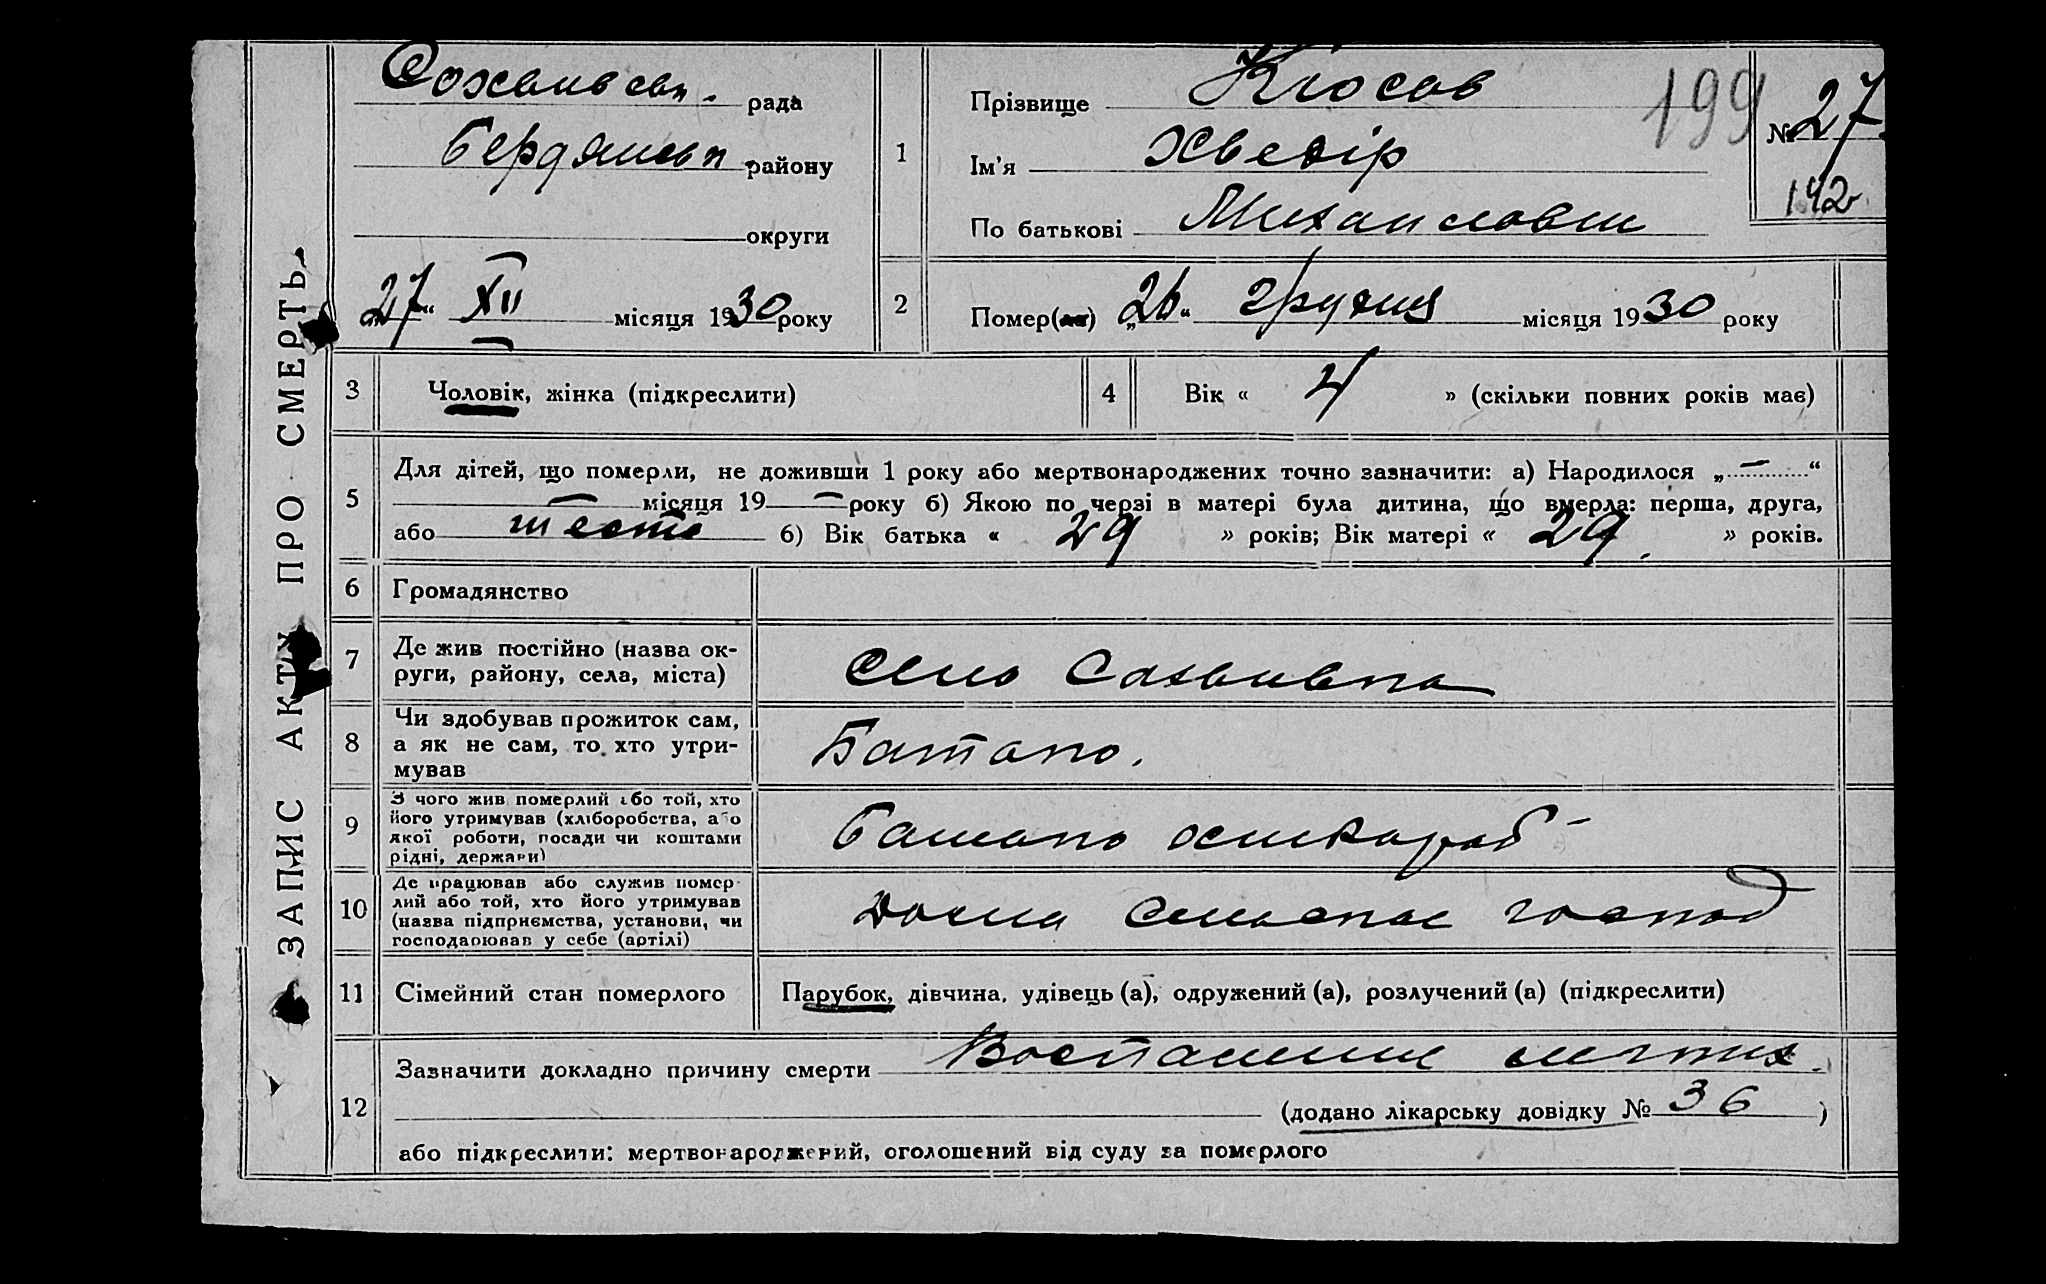 ЗАПИС АКТУ ПРО СМЕРТЬ
рада
Бердянськ району
округи
„27“ XII місяця 1930 року
1
Прізвище Кюсов
Ім'я Хведір
По батькові Михайлович
199
№ 27
142
2
Помер(ла) „26“ грудня місяця 1930 року
3
Чоловік, жінка (підкреслити)
4
Вік « 4 » (скільки повних років має)
5
Для дітей, що померли, не доживши 1 року або мертвонароджених точно зазначити: а) Народилося „ — “
— місяця 19 — року б) Якою по черзі в матері була дитина, що вмерла: перша, друга,
або шеста б) Вік батька « 29 » років; Вік матері « 29 » років.
6
Громадянство
7
Де жив постійно (назва ок-
руги, району, села, міста)
село
8
Чи здобував прожиток сам,
а як не сам, то хто утри-
мував
Батько.
9
З чого жив померлий або той, хто
його утримував (хліборобства, або
якої роботи, посади чи коштами
рідні, держави)
Батько
10
Де працював або служив помер-
лий або той, хто його утримував
(назва підприємства, установи, чи
господарював у себе (артілі)
Дома сельское господ
11
Сімейний стан померлого
Парубок, дівчина, удівець (а), одружений (а), розлучений (а) (підкреслити)
12
Зазначити докладно причину смерти Воспаление легких.
(додано лікарську довідку № 36 )
або підкреслити: мертвонароджений, оголошений від суду за померлого